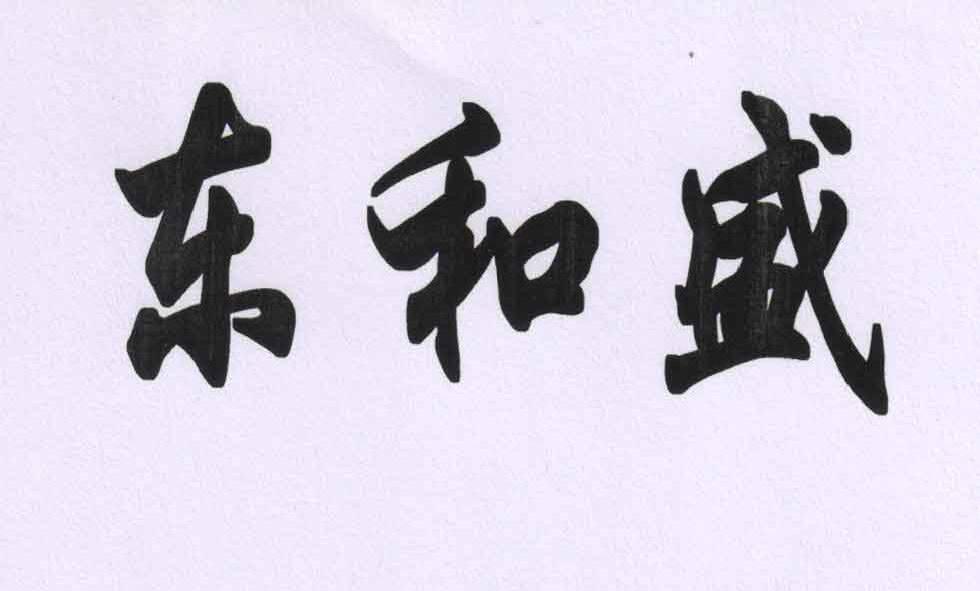 东和盛